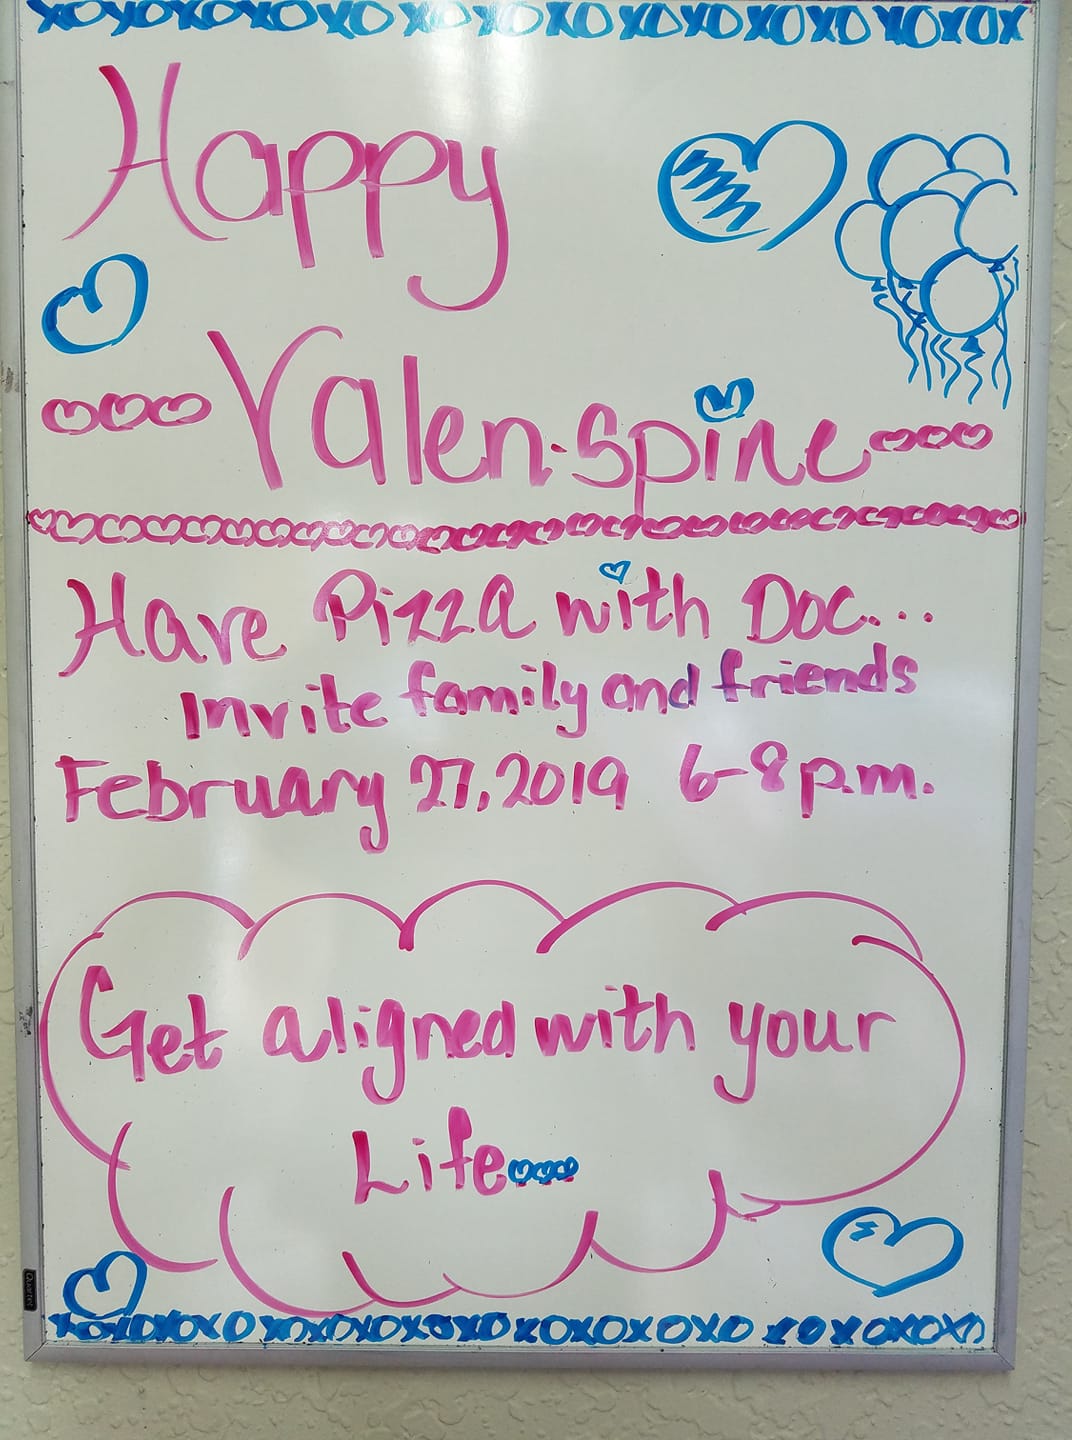 XOXOXOXOXOXOXOXOXOXOXOXOXOX
Happy
Valen-spine
Have Pizza with Doc...
Invite family and friends
February 27, 2019 6-8 p.m.
Get aligned with your
Life...
Quartet